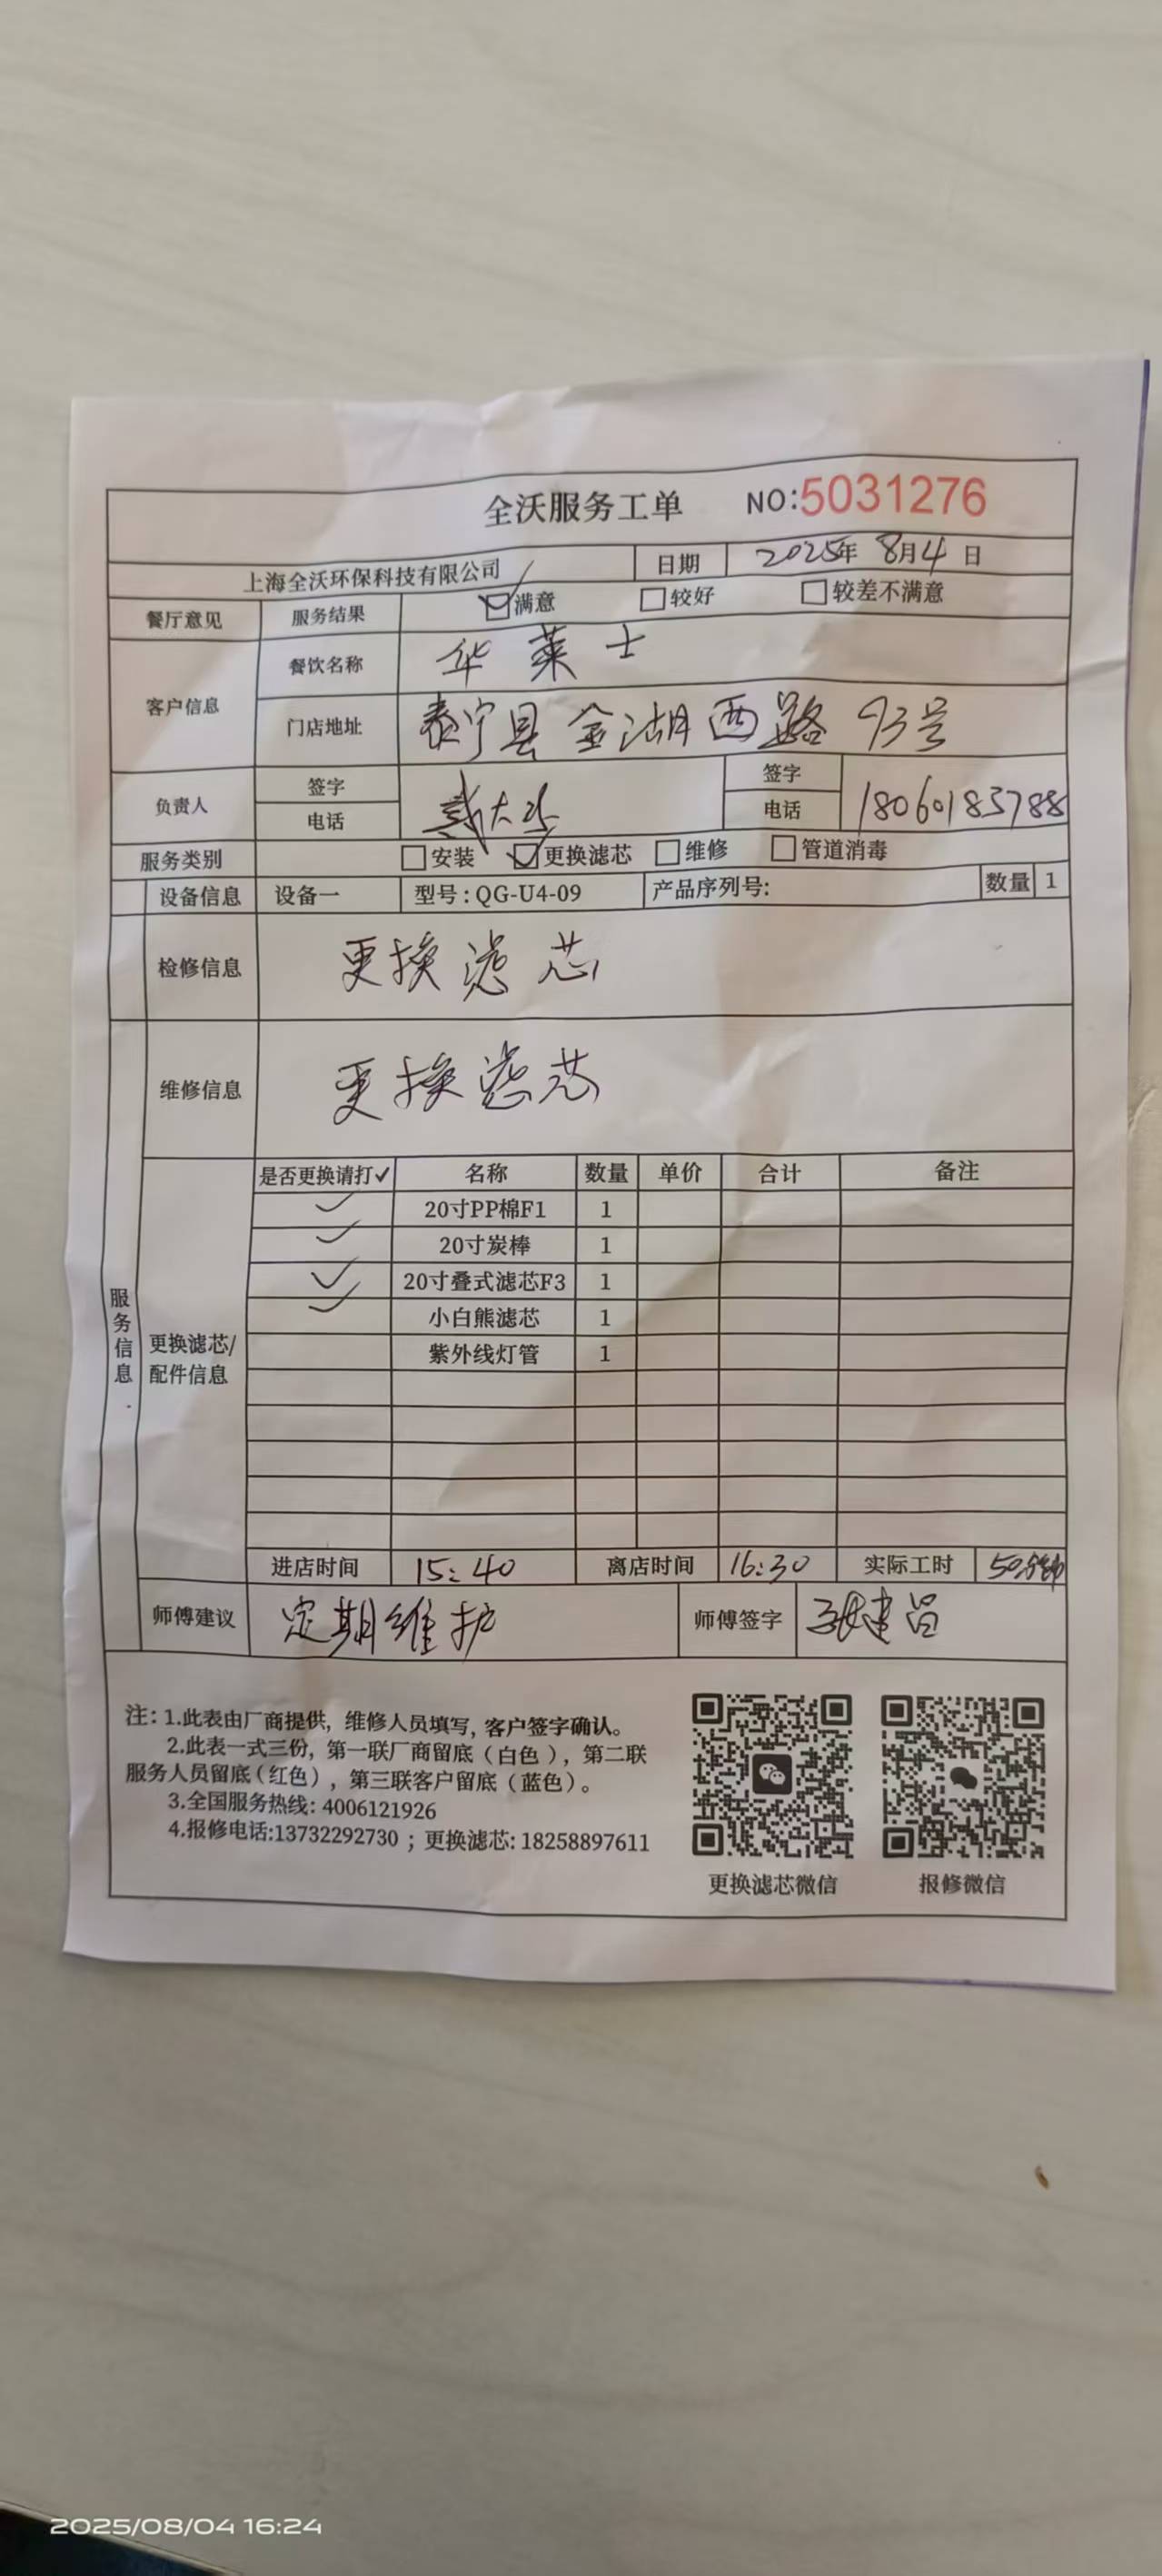 全沃服务工单 NO:5031276
上海全沃环保科技有限公司 日期 2025年 8月4日
餐厅意见 服务结果 ☑满意 □较好 □较差不满意
客户信息 餐饮名称 华莱士
门店地址 泰宁县金湖西路93号
负责人 签字 签字
电话 电话 18060183788
服务类别 □安装 ☑更换滤芯 □维修 □管道消毒
设备信息 设备一 型号:QG-U4-09 产品序列号: 数量 1
检修信息 更换滤芯
维修信息 更换滤芯
服务信息
更换滤芯/配件信息
是否更换请打✓ 名称 数量 单价 合计 备注
✓ 20寸PP棉F1 1
✓ 20寸炭棒 1
✓ 20寸叠式滤芯F3 1
✓ 小白熊滤芯 1
紫外线灯管 1
进店时间 15:40 离店时间 16:30 实际工时 50分钟
师傅建议 定期维护 师傅签字 张建昌
注: 1.此表由厂商提供, 维修人员填写, 客户签字确认。
2.此表一式三份, 第一联厂商留底(白色), 第二联
服务人员留底(红色), 第三联客户留底(蓝色)。
3.全国服务热线: 4006121926
4.报修电话:13732292730 ; 更换滤芯: 18258897611
更换滤芯微信 报修微信
2025/08/04 16:24